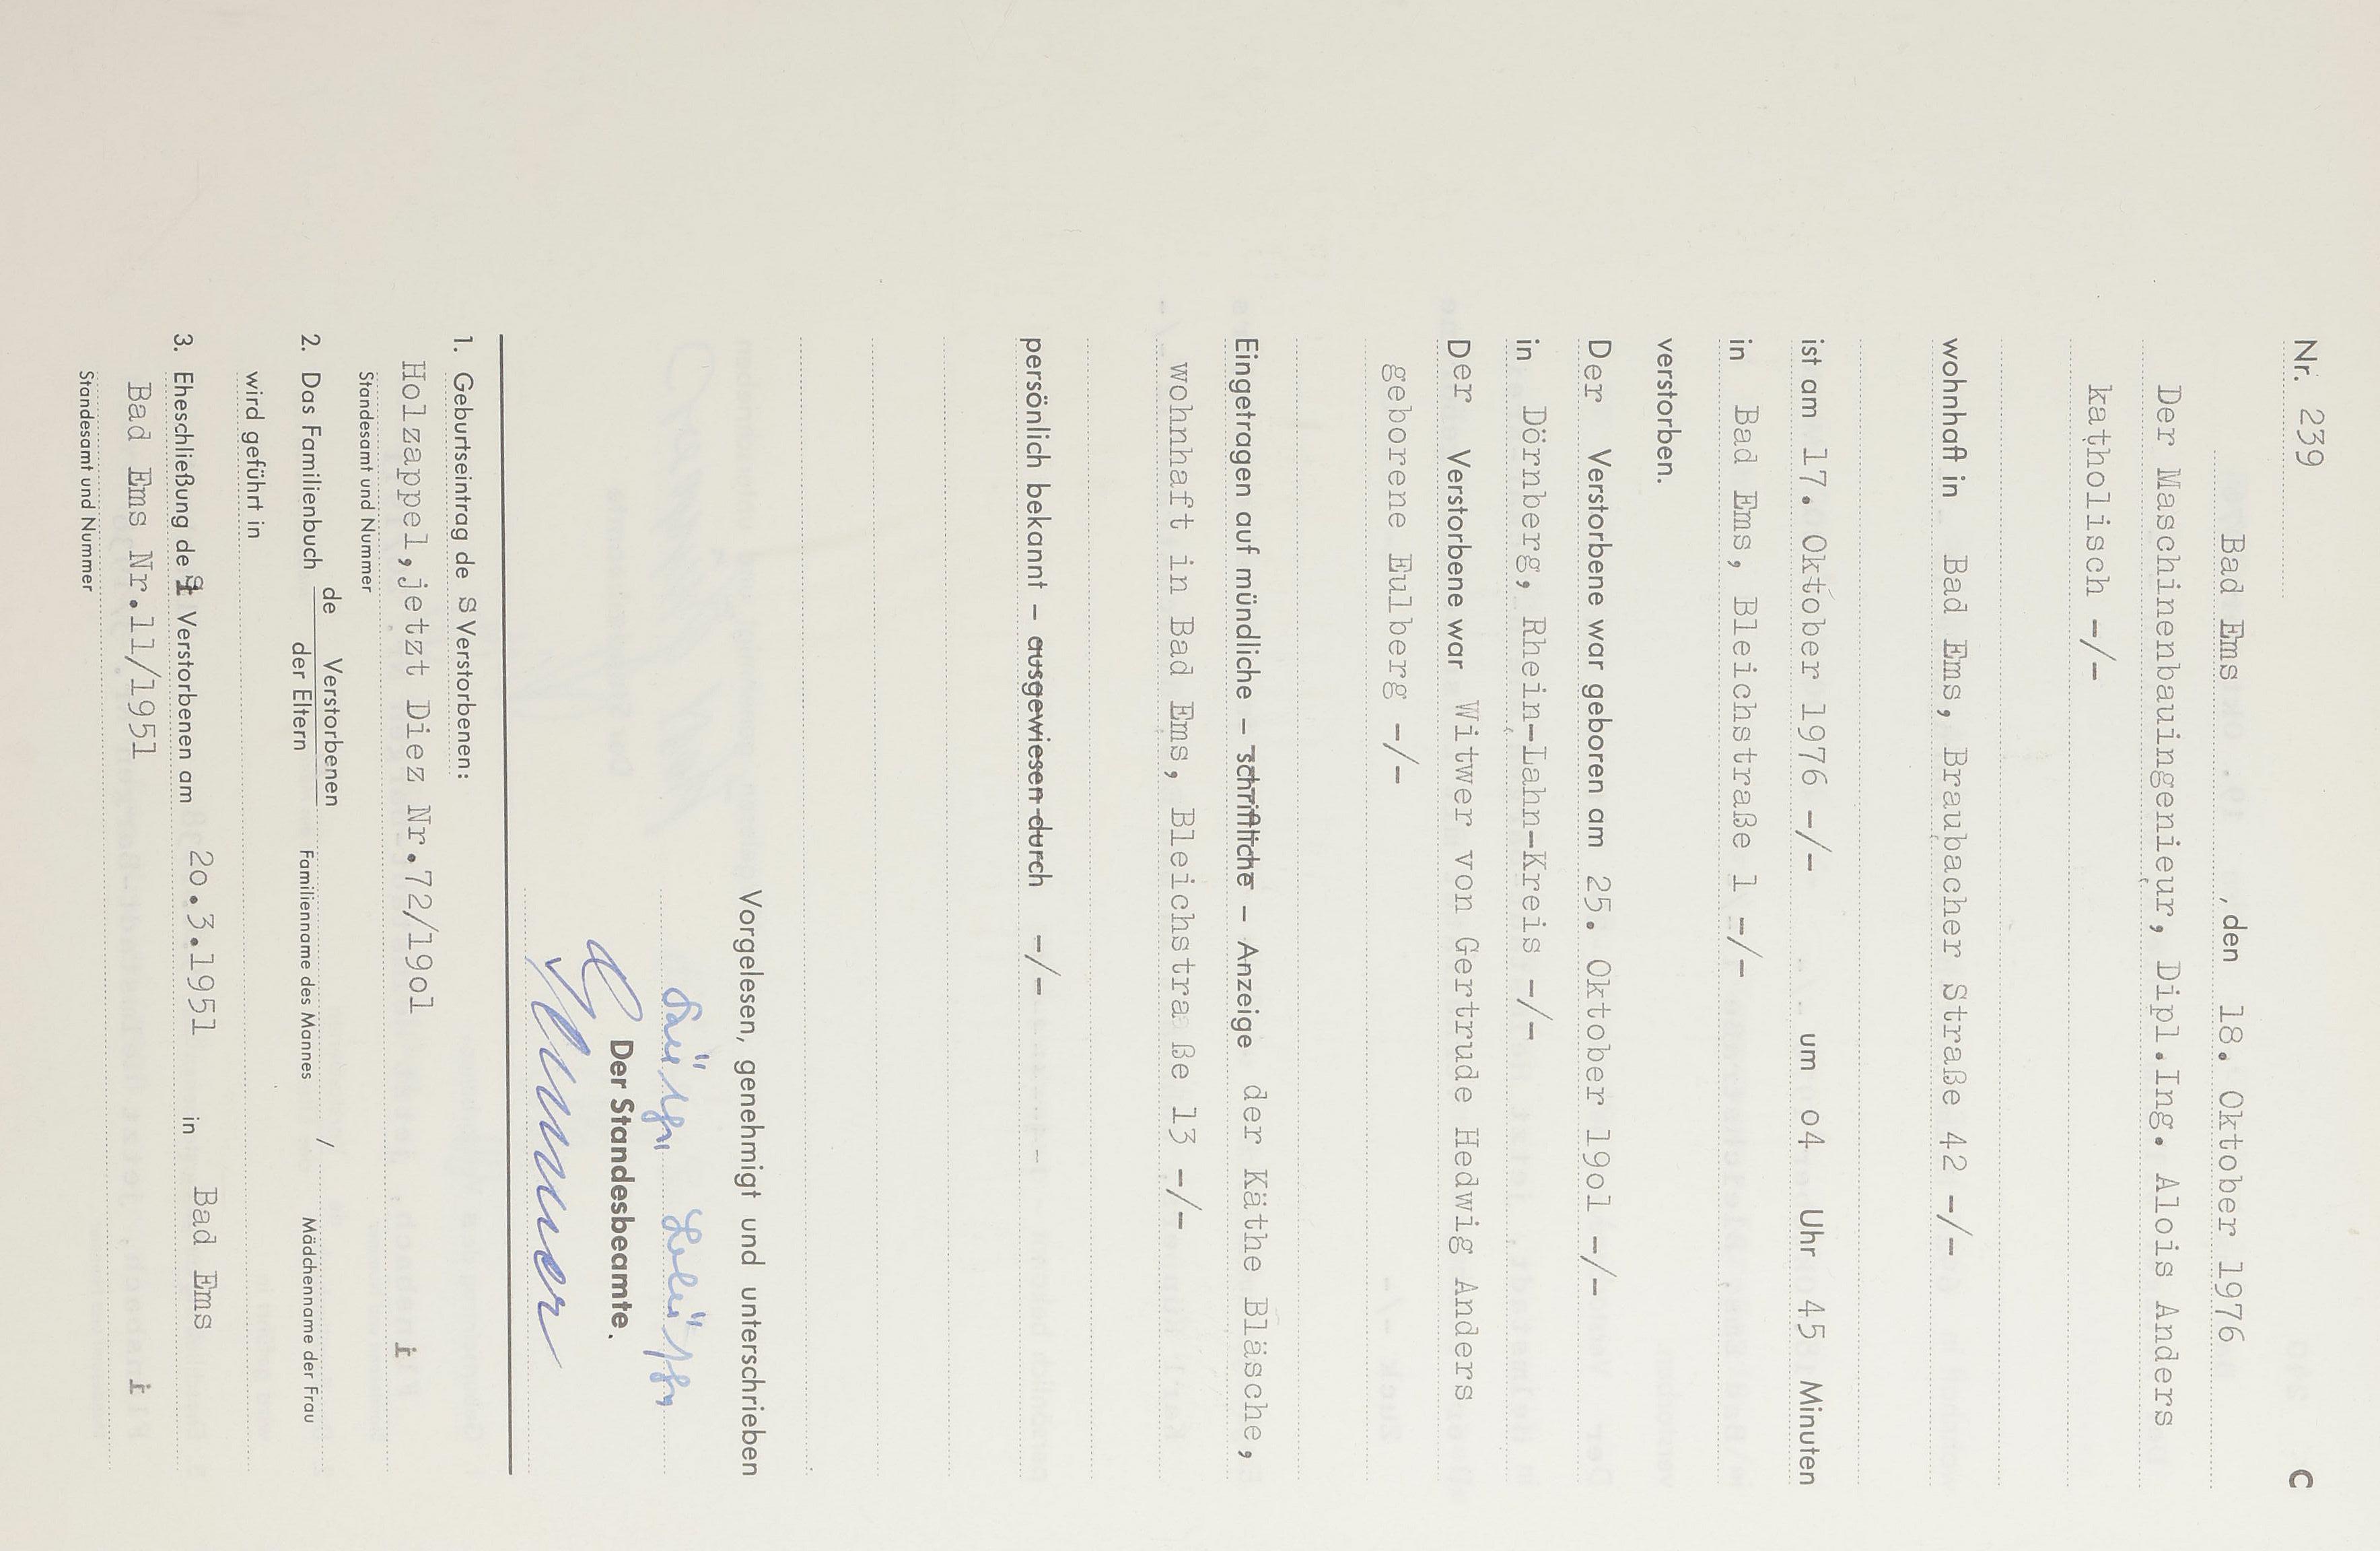 Nr. 239 C
Bad Ems , den 18. Oktober 1976
Der Maschinenbauingenieur, Dipl.Ing. Alois Anders
katholisch -/-
wohnhaft in Bad Ems, Braubacher Straße 42 -/-
ist am 17. Oktober 1976 -/- um o4 Uhr 45 Minuten
in Bad Ems, Bleichstraße 1 -/-
verstorben.
Der Verstorbene war geboren am 25. Oktober 19o1 -/-
in Dörnberg, Rhein-Lahn-Kreis -/-
Der Verstorbene war Witwer von Gertrude Hedwig Anders
geborene Eulberg -/-
Eingetragen auf mündliche – schriftliche – Anzeige der Käthe Bläsche,
wohnhaft in Bad Ems, Bleichstra ße 13 -/-
persönlich bekannt – ausgewiesen durch -/-
Vorgelesen, genehmigt und unterschrieben
Der Standesbeamte.
1. Geburtseintrag de s Verstorbenen:
Holzappel,jetzt Diez Nr.72/19o1 i
Standesamt und Nummer
2. Das Familienbuch de Verstorbenen der Eltern /
Familienname des Mannes Mädchenname der Frau
wird geführt in
3. Eheschließung des Verstorbenen am 2o.3.1951 in Bad Ems
Bad Ems Nr.11/1951 i
Standesamt und Nummer